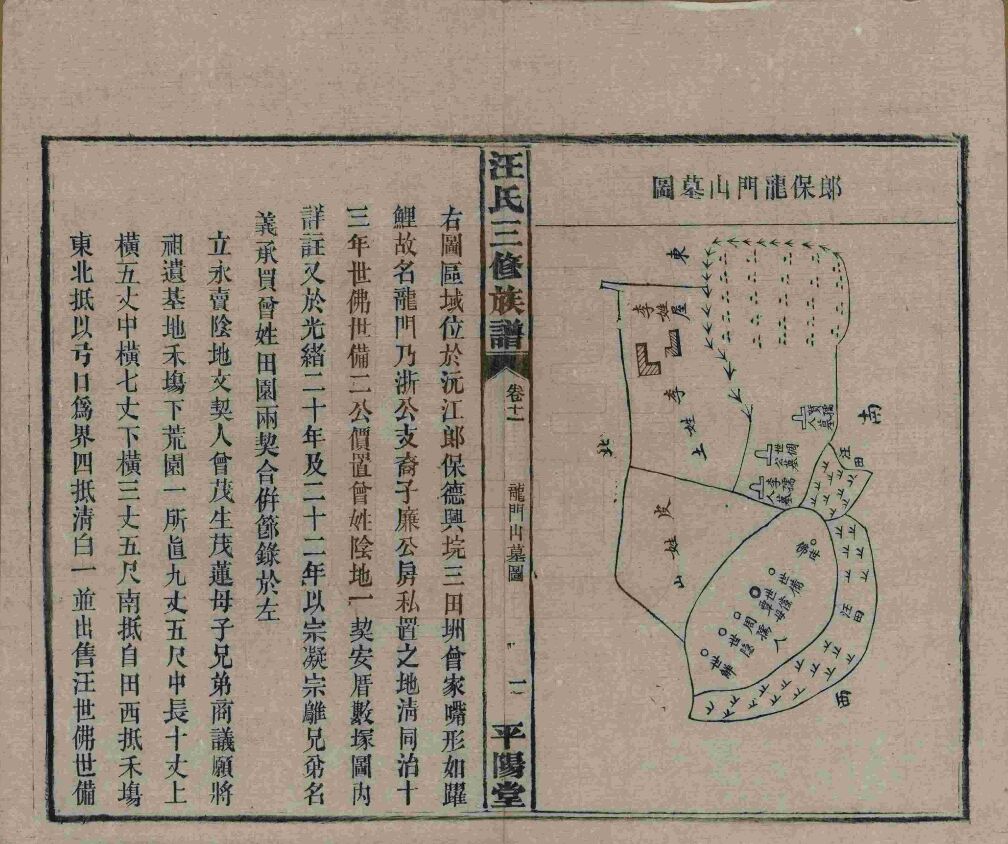 郎保龍門山墓圖
東
南
西
北
李姓屋
李姓土
皮姓山
汪田
汪田
汪氏三修族譜
卷十一
龍門山墓圖
一
平陽堂
右圖區域位於沅江郎保德興垸三田坝曾家嘴形如躍
鯉故名龍門乃浙公支裔子廉公房私置之地清同治十
三年世佛世備二公價置曾姓陰地一契安厝數塚圖內
詳註又於光緒二十年及二十二年以宗凝宗離兄弟名
義承買曾姓田園兩契合併節錄於左
立永賣陰地文契人曾茂生茂蓮母子兄弟商議願將
祖遺基地禾塲下荒園一所直九丈五尺中長十丈上
橫五丈中橫七丈下橫三丈五尺南抵自田西抵禾塲
東北抵以弓口爲界四抵清白一並出售汪世佛世備